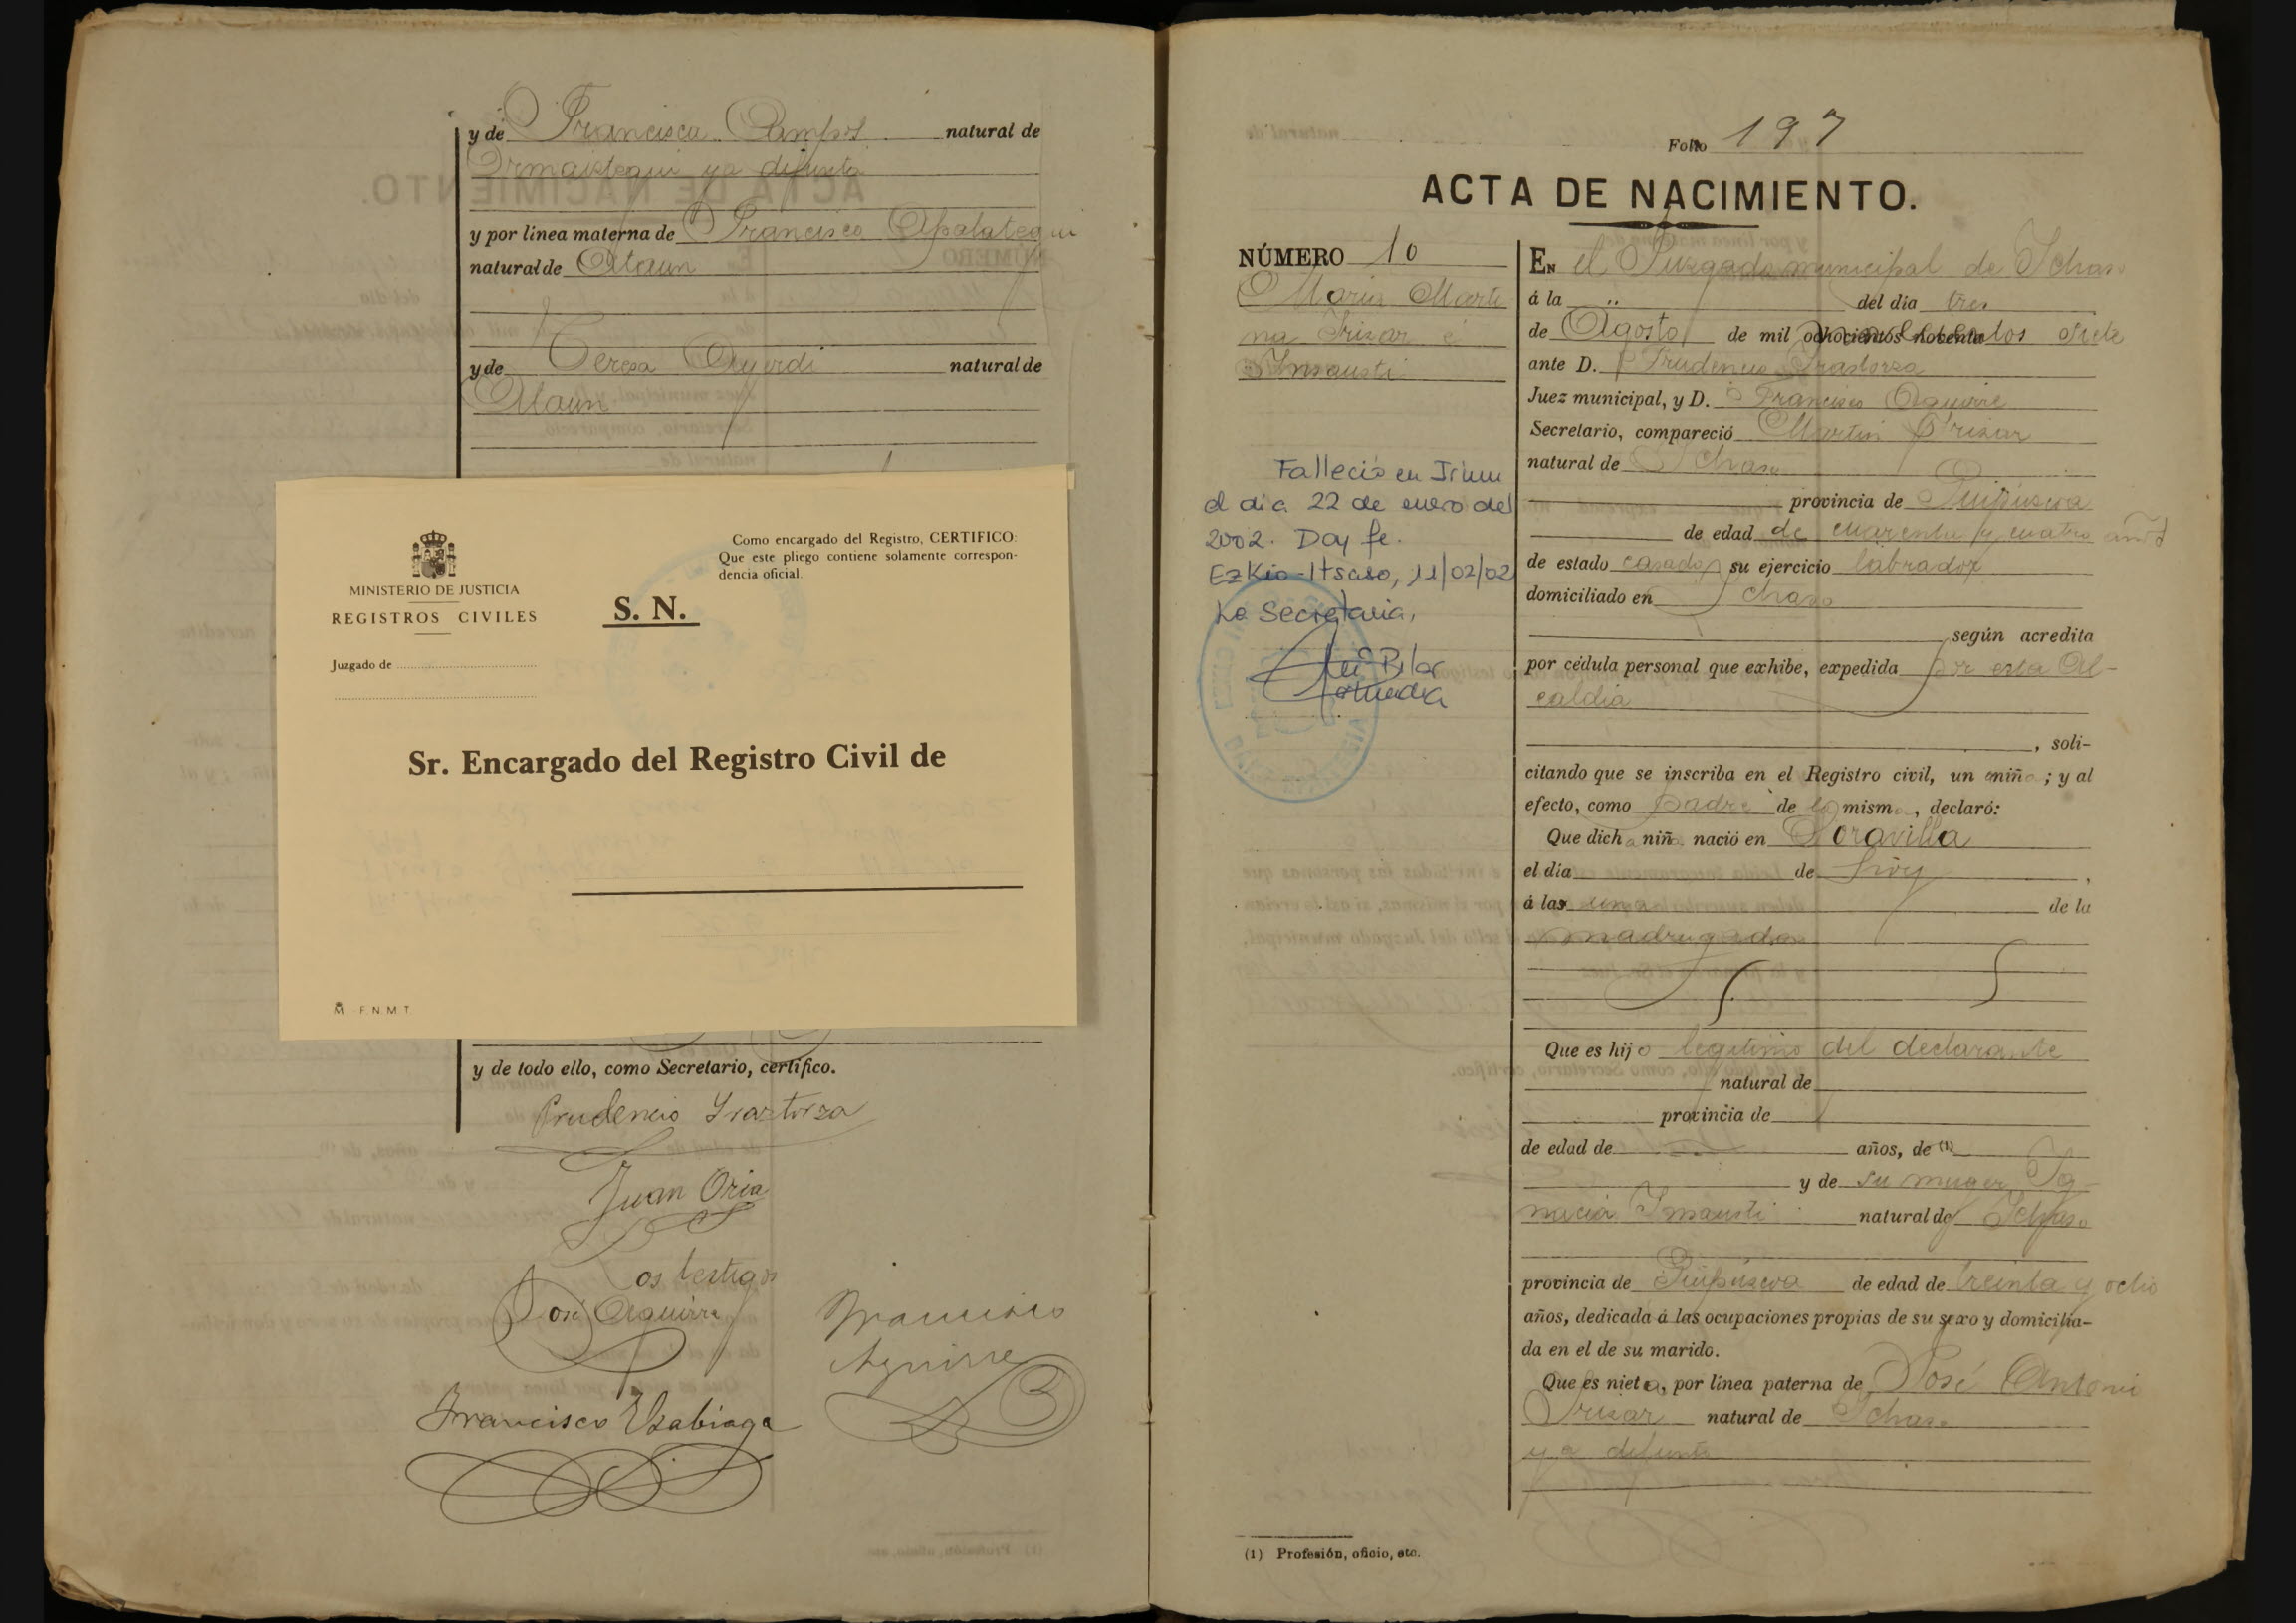 y de Francisca Campos natural de
Ormaiztegui ya difunta
y por linea materna de Francisco Apalategui
natural de Ataun
y de Teresa Ayerdi natural de
Ataun
MINISTERIO DE JUSTICIA
REGISTROS CIVILES
Juzgado de
S. N.
Como encargado del Registro, CERTIFICO:
Que este pliego contiene solamente correspon-
dencia oficial.
Sr. Encargado del Registro Civil de
F.N.M.T.
y de todo ello, como Secretario, certifico.
Prudencio Yraztorza
Juan Oria
Los testigos
José Aguirre
Francisco
Aguirre
Francisco Usabiaga
Folio 197
ACTA DE NACIMIENTO.
NÚMERO 10
Maria Marti
na Irizar é
Insausti
Falleció en Irún
el día 22 de enero del
2002. Doy fe.
Ezkio-Itsaso, 11/02/02
La Secretaria,
En el Juzgado municipal de Ichaso
á la " del dia tres
de Agosto de mil novecientos siete
ante D. Prudencio Irastorza
Juez municipal, y D. Francisco Aguirre
Secretario, compareció Martin Irizar
natural de Ichaso
provincia de Guipúzcoa
de edad de cuarenta y cuatro años
de estado casado su ejercicio labrador
domiciliado en Ichaso
según acredita
por cédula personal que exhibe, expedida por esta Al-
caldia
, soli-
citando que se inscriba en el Registro civil, un niña; y al
efecto, como padre de la misma, declaró:
Que dicha niña nació en Soravilla
el dia de hoy,
á las una de la
madrugada
Que es hijo legitimo del declarante
natural de
provincia de
de edad de años, de (1)
y de su muger Ig
nacia Insausti natural de Ichaso
provincia de Guipúzcoa de edad de treinta y ocho
años, dedicada á las ocupaciones propias de su sexo y domicilia-
da en el de su marido.
Que es nieta, por linea paterna de José Antonio
Irizar natural de Ichaso
ya difunto
(1) Profesión, oficio, etc.